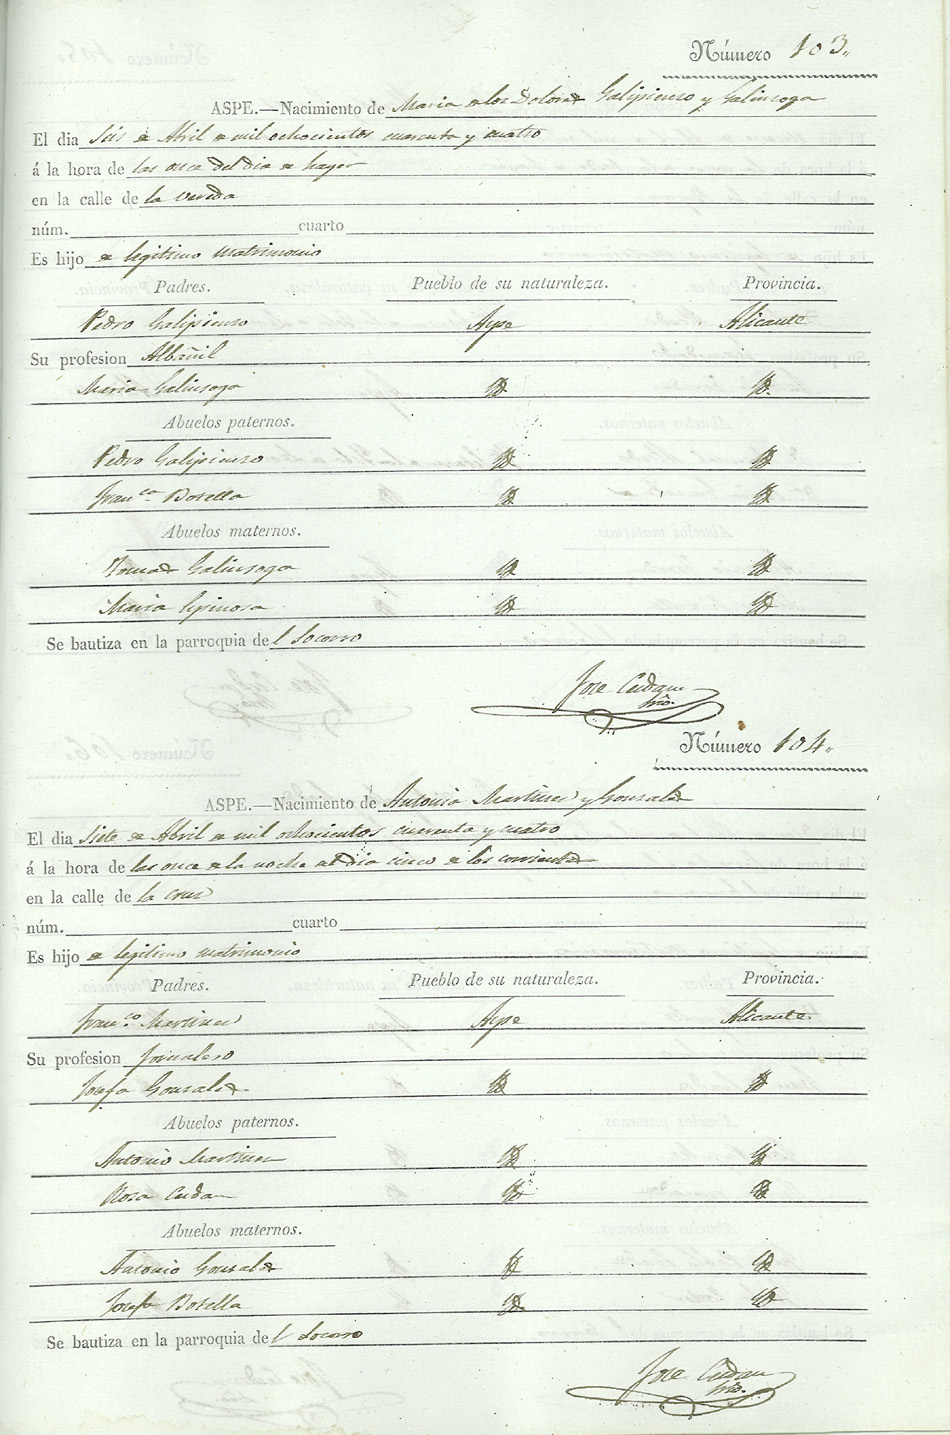 Número 103.
ASPE.—Nacimiento de Maria de los Dolores Galipienso y Galinsoga
El dia Seis de Abril de mil ochocientos cuarenta y cuatro
á la hora de las once del dia de hayer
en la calle de la Vereda
núm. cuarto
Es hijo de legitimo matrimonio
Padres. Pueblo de su naturaleza. Provincia.
Pedro Galipienso Aspe Alicante
Su profesion Albañil
Maria Galinsoga Id Id.
Abuelos paternos.
Pedro Galipienso Id Id
Fran.ca Botella Id Id
Abuelos maternos.
Tomas Galinsoga Id Id
Maria Espinosa Id Id
Se bautiza en la parroquia del Socorro
Jose Cerdan
Número 104.
ASPE.—Nacimiento de Antonia Martinez y Gonzalez
El dia Siete de Abril de mil ochocientos cuarenta y cuatro
á la hora de las once de la noche del dia cinco de los corrientes
en la calle de la Cruz
núm. cuarto
Es hijo de legitimo matrimonio
Padres. Pueblo de su naturaleza. Provincia.
Fran.co Martinez Aspe Alicante
Su profesion Jornalero
Josefa Gonzalez Id Id
Abuelos paternos.
Antonio Martinez Id Id
Rosa Cerdan Id Id
Abuelos maternos.
Antonio Gonzalez Id Id
Josefa Botella Id Id
Se bautiza en la parroquia del Socorro
Jose Cerdan